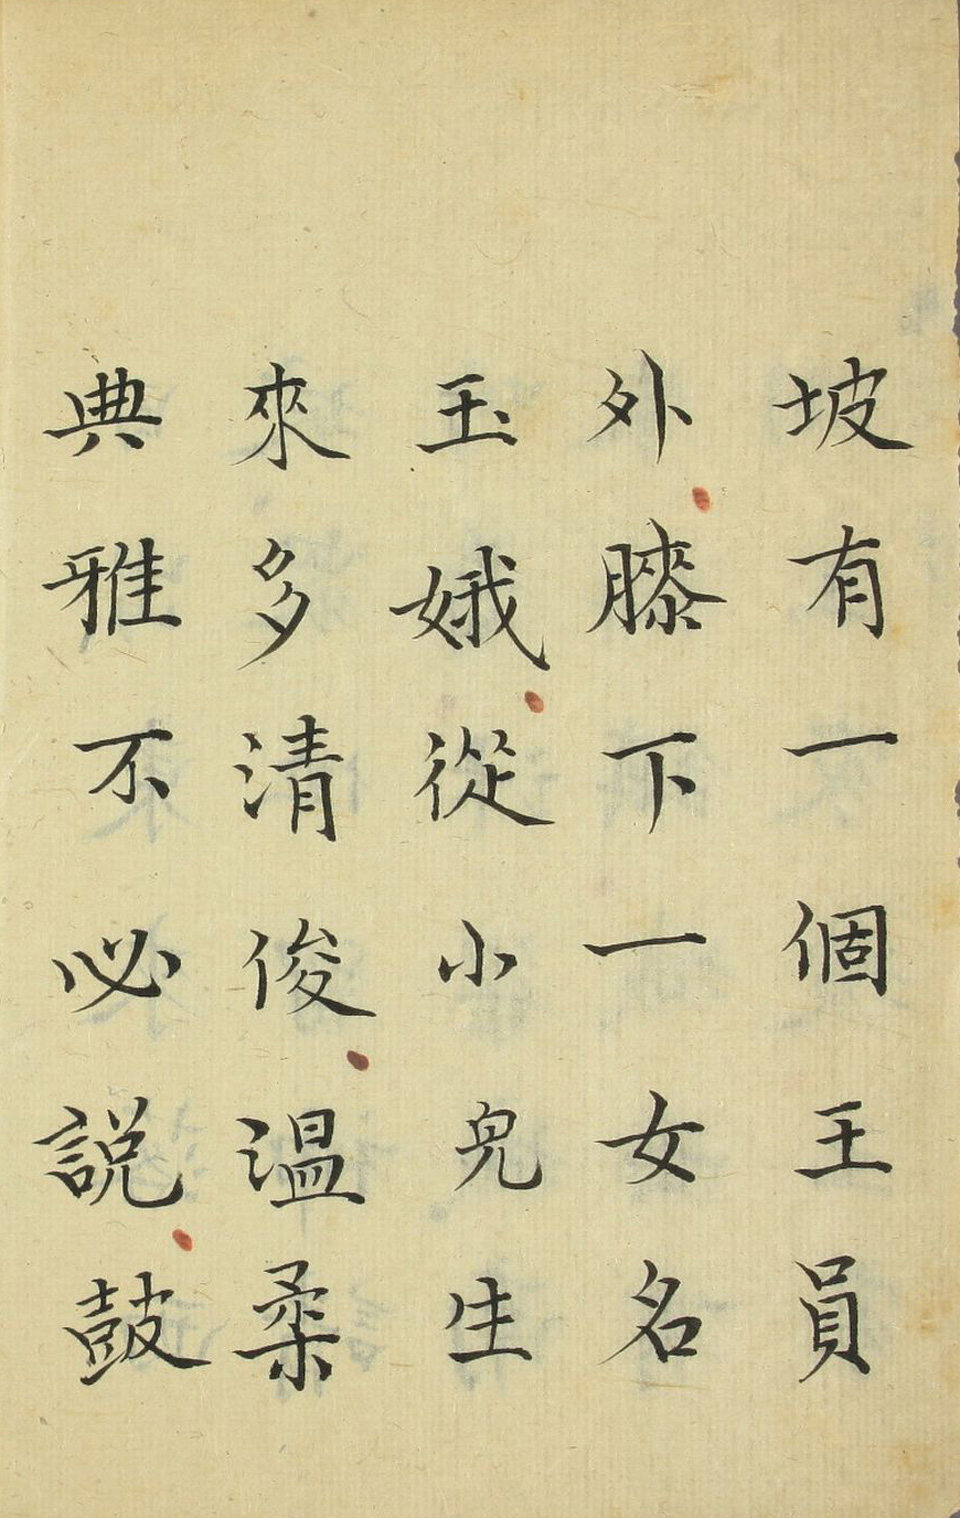 坡有一個王員
外膝下一女名
玉娥從小兒生
來多清俊溫柔
典雅不必說鼓